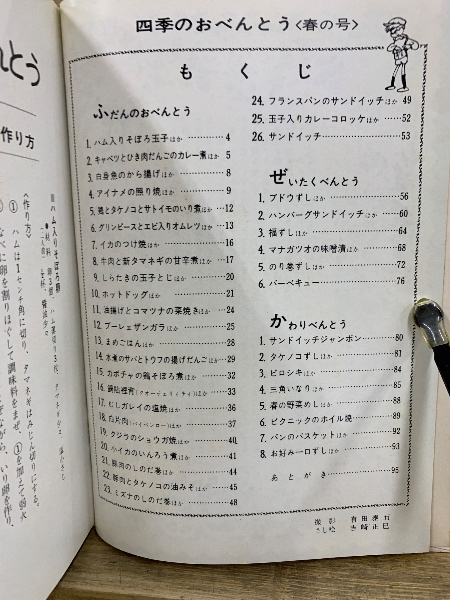 四季のおべんとう〈春の号〉
もくじ
ふだんのおべんとう
1. ハム入りそぼろ玉子ほか…………4
2. キャベツとひき肉だんごのカレー煮ほか 5
3. 白身魚のから揚げほか…………8
4. アイナメの照り焼ほか…………9
5. 鶏とタケノコとサトイモのいり煮ほか…12
6. グリンピースとエビ入りオムレツほか…13
7. イカのつけ焼ほか…………16
8. 牛肉と新タマネギの甘辛煮ほか……17
9. しらたきの玉子とじほか…………20
10. ホットドッグほか…………21
11. 油揚げとコマツナの菜焼きほか……24
12. プーレェザンガラほか…………25
13. まめごはんほか…………28
14. 水煮のサバとトウフの揚げだんごほか…29
15. カボチャの鶏そぼろ煮ほか………32
16. 鍋貼裡脊（クオーティエリィチイ）ほか…33
17. むしガレイの塩焼ほか…………36
18. 白片肉（パイペンロー）ほか………37
19. クジラのショウガ焼ほか…………40
20. ハイカのいんろう煮ほか…………41
21. 豚肉のしのだ巻ほか…………44
22. 豚肉とタケノコの油みそほか………45
23. ミズナのしのだ巻ほか…………48
24. フランスパンのサンドイッチほか 49
25. 玉子入りカレーコロッケほか……52
26. サンドイッチ…………53
ぜいたくべんとう
1. ブドウずしほか…………56
2. ハンバーグサンドイッチほか……60
3. 福ずしほか…………64
4. マナガツオの味噌漬ほか………68
5. のり巻ずしほか…………72
6. バーベキューほか…………76
かわりべんとう
1. サンドイッチジャンボン…………80
2. タケノコずしほか…………81
3. ピロシキほか…………84
4. 三角いなりほか…………85
5. 春の野菜めしほか…………88
6. ピクニックのホイル焼ほか………89
7. パンのバスケットほか…………92
8. お好み一口ずしほか…………93
あとがき…………95
撮影
さし絵
作り方
ハム入りそぼろ丼
〈作り方〉
① ハムは1センチ角に切り、タマネギはみじん切りにする。